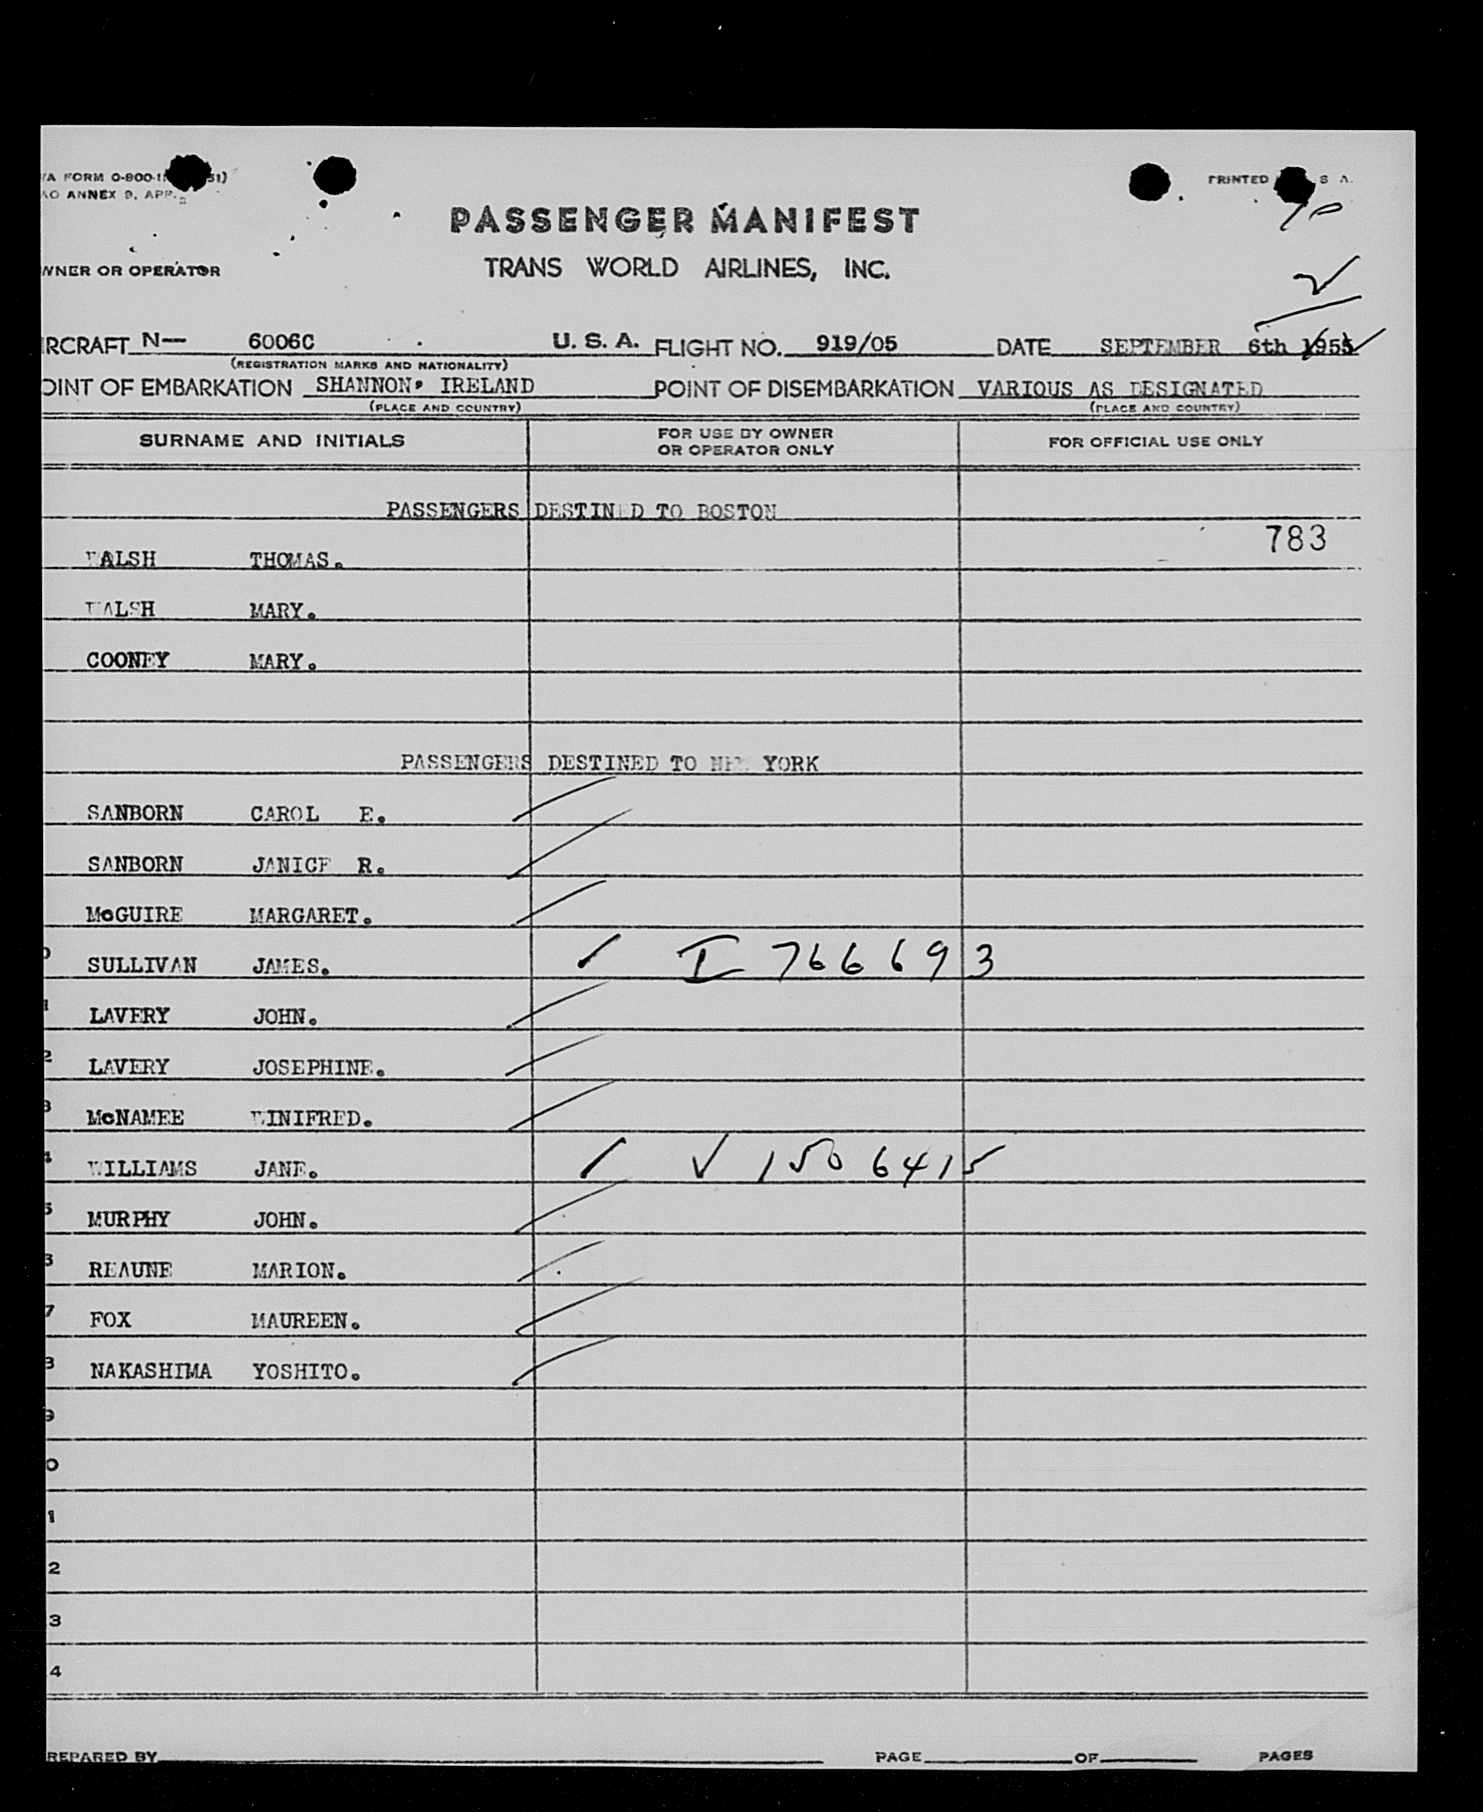 FORM O-800-
ANNEX 9, APP.
PRINTED S A.
10
PASSENGER MANIFEST
WNER OR OPERATOR
TRANS WORLD AIRLINES, INC.
IRCRAFT N— 6006C U. S. A. FLIGHT NO. 919/05 DATE SEPTEMBER 6th 1955
(REGISTRATION MARKS AND NATIONALITY)
OINT OF EMBARKATION SHANNON, IRELAND POINT OF DISEMBARKATION VARIOUS AS DESIGNATED
(PLACE AND COUNTRY) (PLACE AND COUNTRY)
SURNAME AND INITIALS FOR USE BY OWNER OR OPERATOR ONLY FOR OFFICIAL USE ONLY
PASSENGERS DESTINED TO BOSTON
783
WALSH THOMAS.
WALSH MARY.
COONEY MARY.
PASSENGERS DESTINED TO NEW YORK
SANBORN CAROL E.
SANBORN JANICE R.
McGUIRE MARGARET.
0 SULLIVAN JAMES. ✓ I 766693
1 LAVERY JOHN.
2 LAVERY JOSEPHINE.
3 McNAMEE WINIFRED.
4 WILLIAMS JANE. ✓ V 1506415
5 MURPHY JOHN.
6 REAUNE MARION.
7 FOX MAUREEN.
8 NAKASHIMA YOSHITO.
9
0
1
2
3
4
REPARED BY PAGE OF PAGES